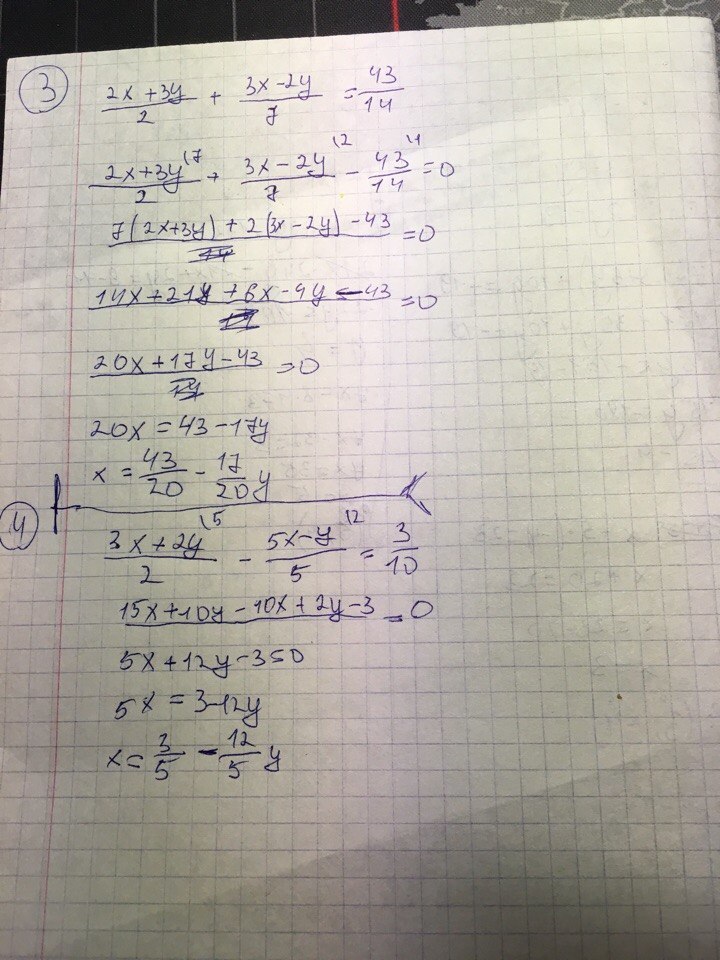 3
(2x+3y)/2 + (3x-2y)/7 = 43/14
(2x+3y)/2 \7 + (3x-2y)/7 \2 - 43/14 \1 = 0
(7(2x+3y)+2(3x-2y)-43)/14 = 0
(14x+21y+6x-4y-43)/14 = 0
(20x+17y-43)/14 = 0
20x = 43-17y
x = 43/20 - 17/20 y
4
(3x+2y)/2 \5 - (5x-y)/5 \2 = 3/10
15x+10y-10x+2y-3 = 0
5x+12y-3=0
5x = 3-12y
x = 3/5 - 12/5 y